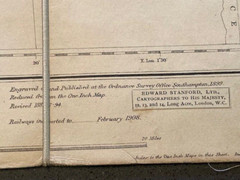 T. Lon. 1°30'
Engraved and Published at the Ordnance Survey Office Southampton
Reduced from the One Inch Map.
Revised 94.
Railways to February 1908.
EDWARD STANFORD, LTD.,
CARTOGRAPHERS TO HIS MAJESTY,
12, 13, and 14, Long Acre, London, W.C.
20 Miles
Index to the One Inch Maps in this Sheet.